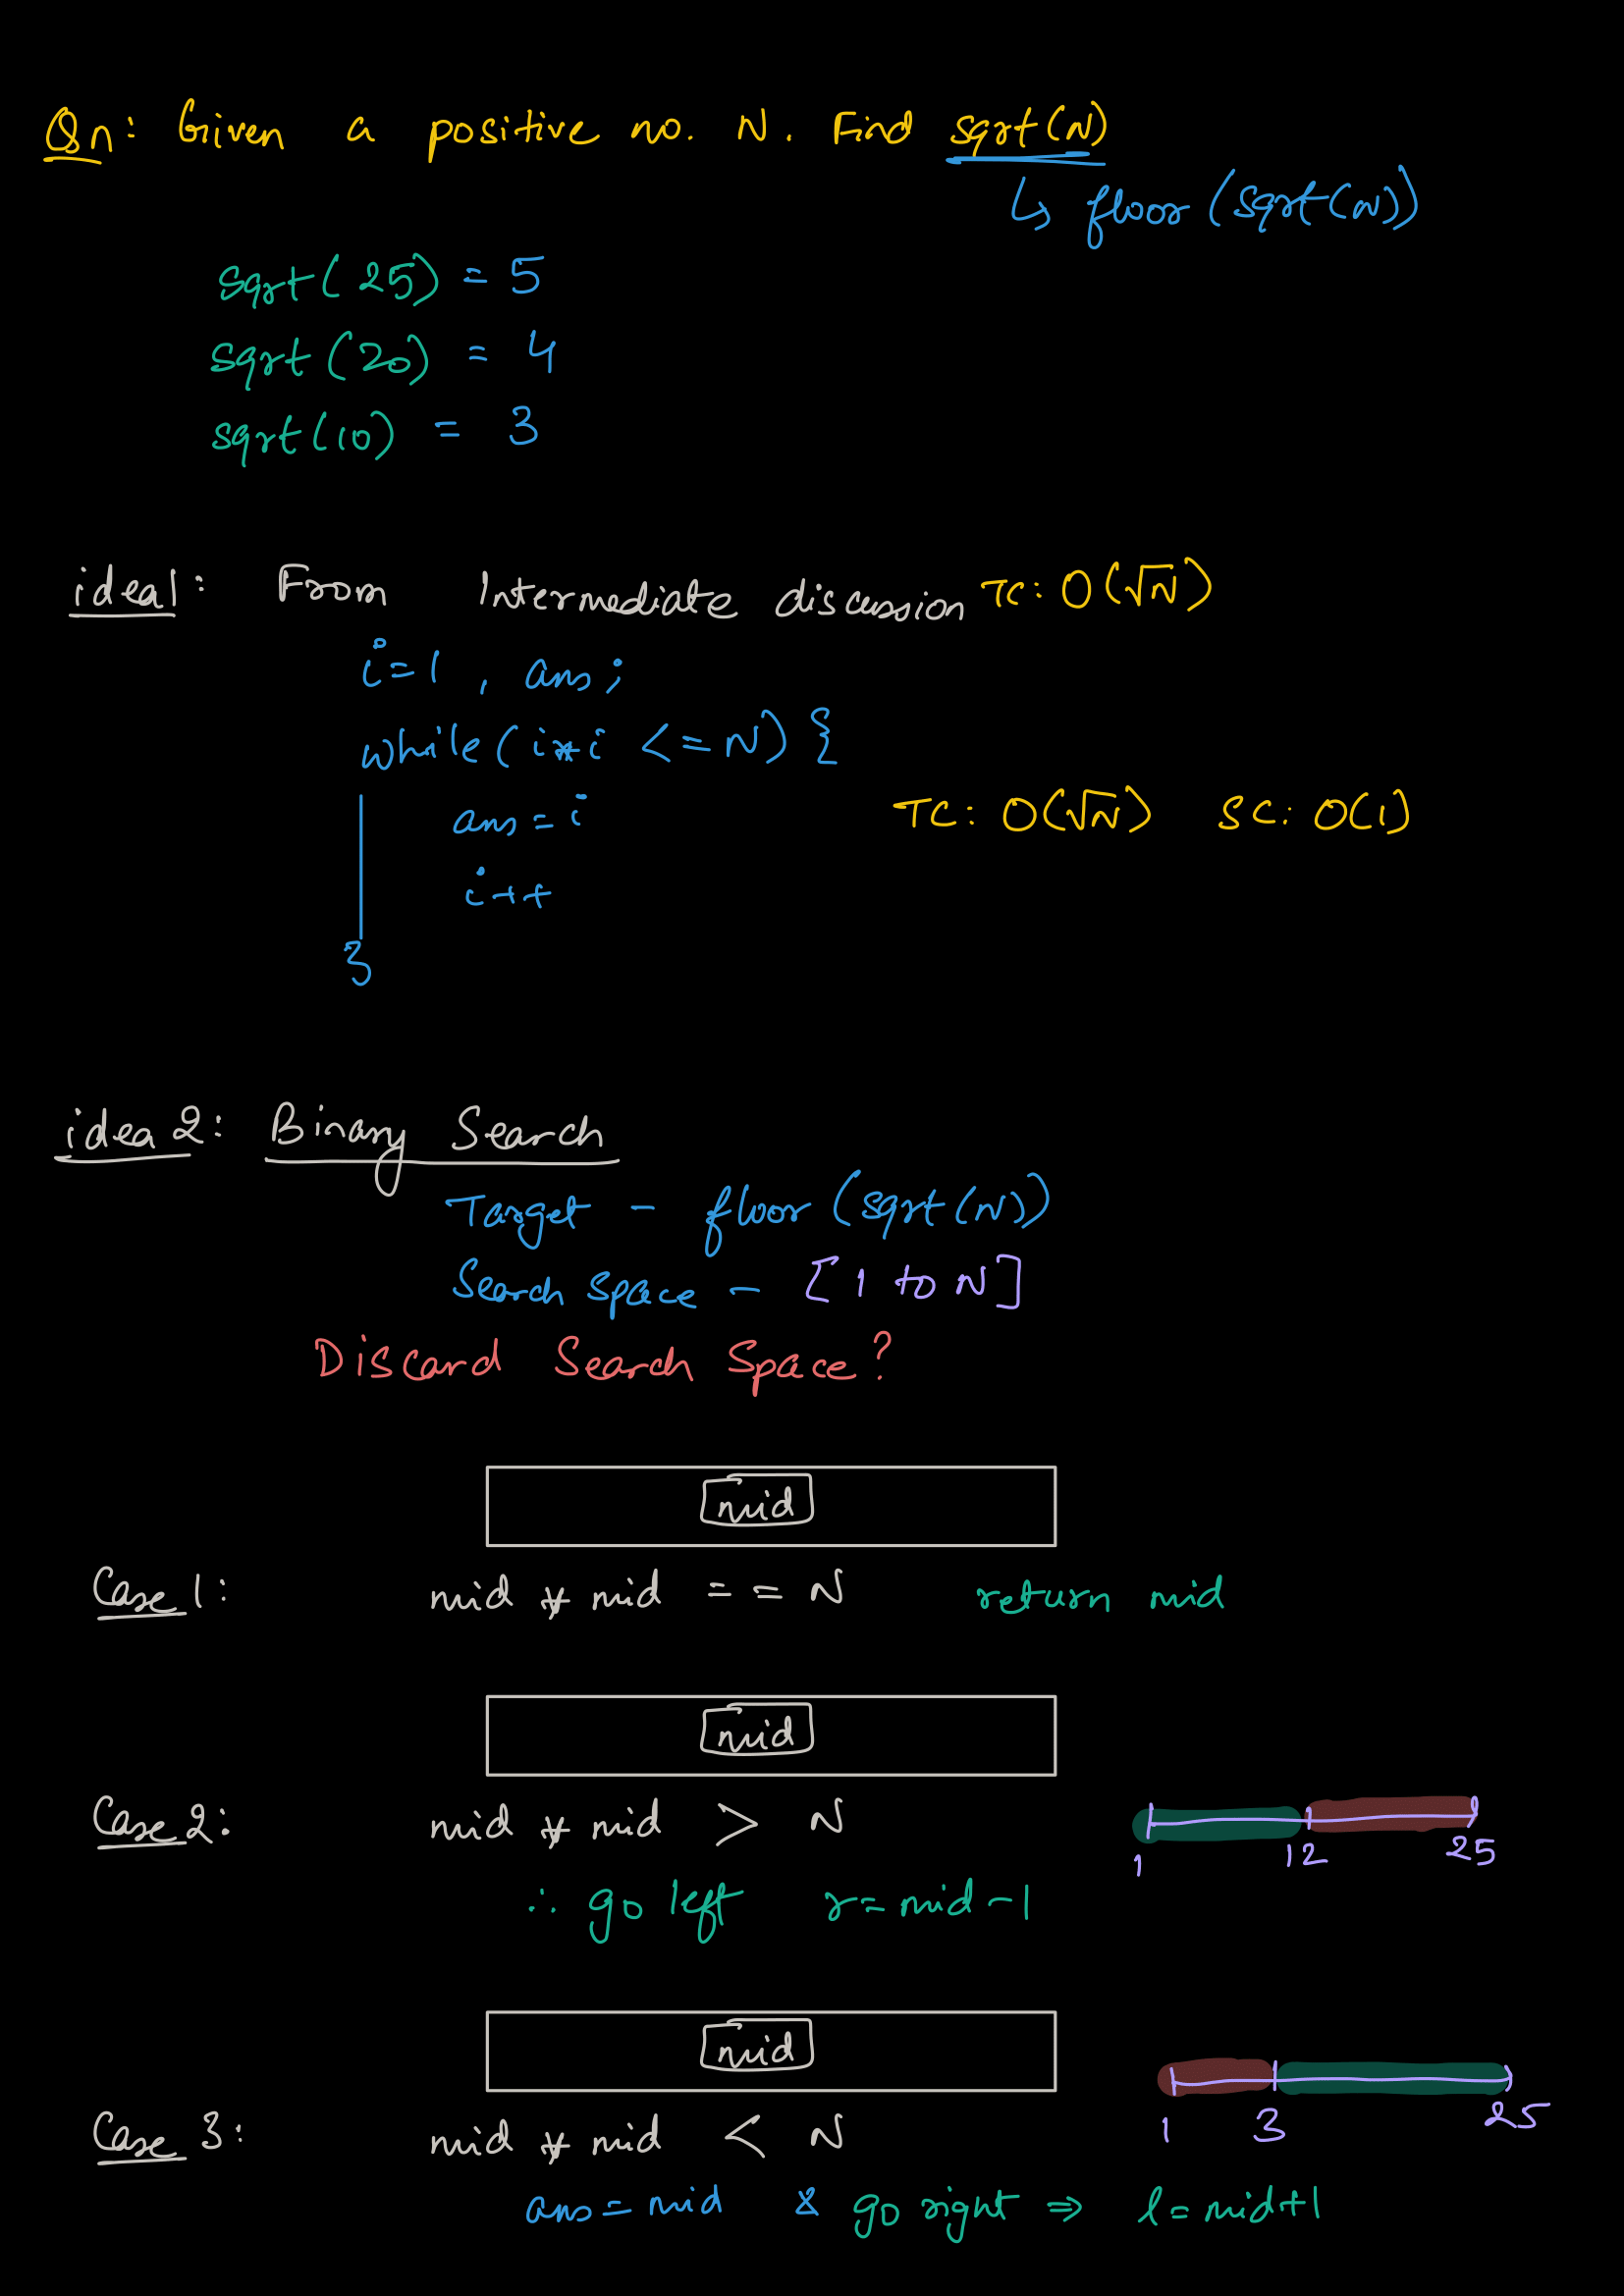 Qn: Given a positive no. N. Find sqrt(N)
↳ floor (sqrt(N))
sqrt(25) = 5
sqrt(20) = 4
sqrt(10) = 3
idea1: From Intermediate discussion TC: O(√N)
i=1 , ans;
while(i*i <= N) {
ans = i
TC: O(√N) SC: O(1)
i++
}
idea 2: Binary Search
Target - floor (sqrt(N))
Search Space - [1 to N]
Discard Search Space?
mid
Case 1: mid * mid == N return mid
mid
Case 2: mid * mid > N
1 12 25
∴ go left r=mid-1
mid
1 3 25
Case 3: mid * mid < N
ans = mid & go right ⇒ l=mid+1